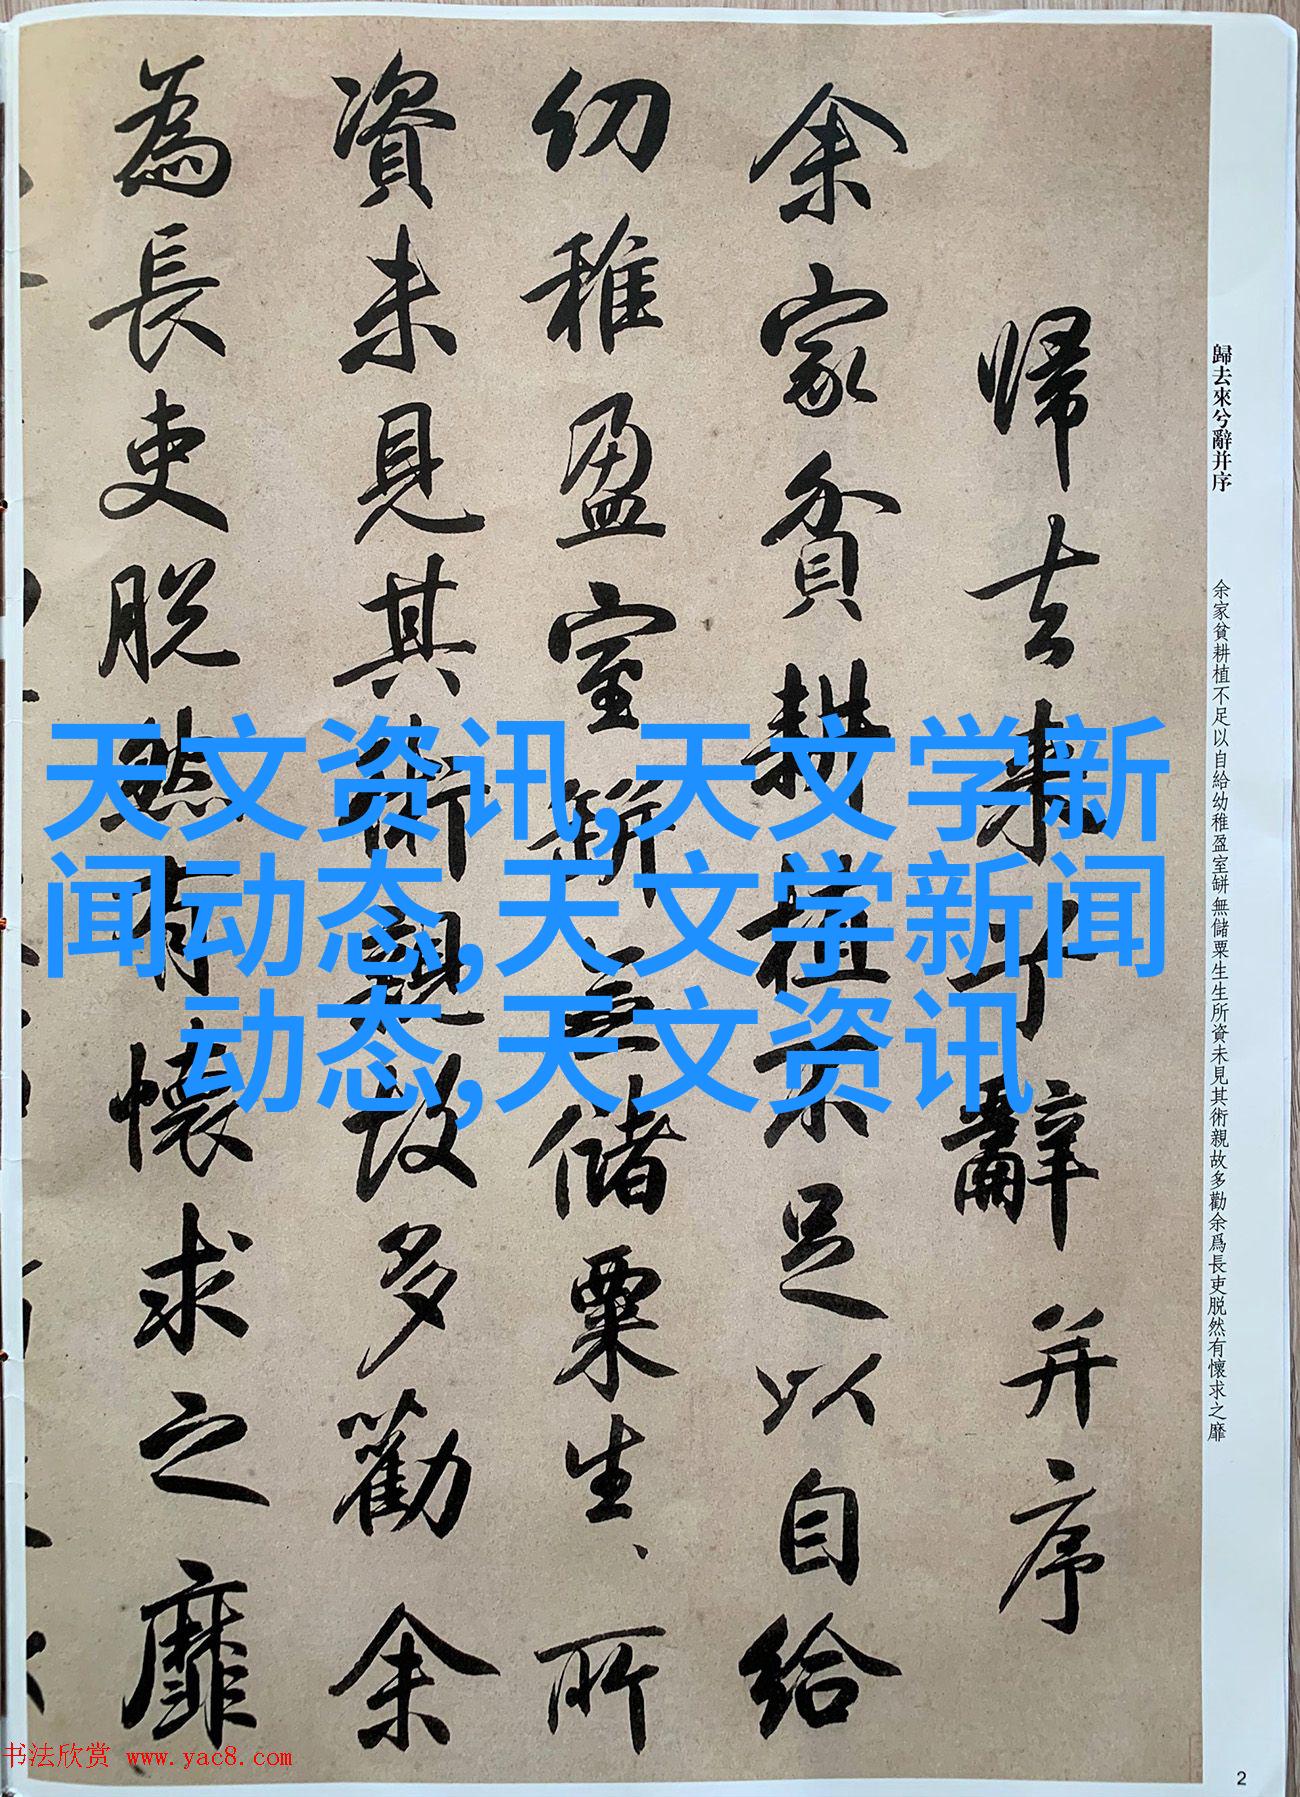 歸去來兮辭并序
余家貧耕植不足以自給幼稚盈室缾無儲粟生生所資未見其術親故多勸余爲長吏脱然有懷求之靡
歸去来兮辭并序
余家貧耕植不足以自給
幼稚盈室缾無儲粟生、所
資未見其術親故多勸余
為長吏脱然有懷求之靡
天文资讯,天文学新
闻动态,天文学新闻
动态,天文资讯
书法欣赏 www.yac8.com
2